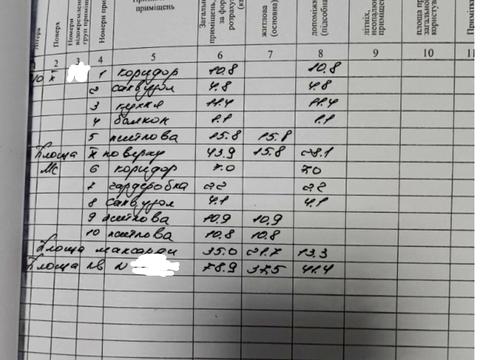 Літера
Поверх
Номери
Номери прим
приміщень
Загаль
приміщень,
за фор
розрахун
(кв
житлова
(основна)
допоміжн
(підсобна
літніх,
неопалюв
приміщень
площа пр
загально
користув
Приміткі
2 3 4 5 6 7 8 9 10 11
1 коридор 10.8 10.8
2 санвузол 4.8 4.8
3 кухня 11.4 11.4
4 балкон 1.1 1.1
5 житлова 15.8 15.8
Площа поверху 43.9 15.8 28.1
мс 6 коридор 7.0 7.0
7 гардеробна 2.2 2.2
8 санвузол 4.1 4.1
9 житлова 10.9 10.9
10 житлова 10.8 10.8
Площа мансарди 35.0 21.7 13.3
Площа кв N 78.9 37.5 41.4